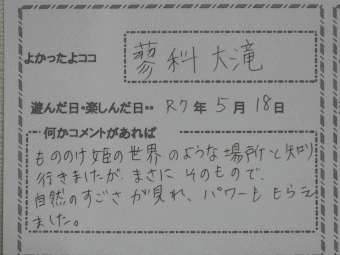 よかったよココ
蓼科大滝
遊んだ日・楽しんだ日・・ R7年5月18日
何かコメントがあれば
もののけ姫の世界のような場所と知り
行きましたが、まさにそのもので、
自然のすごさが見れ、パワーももらえ
ました。